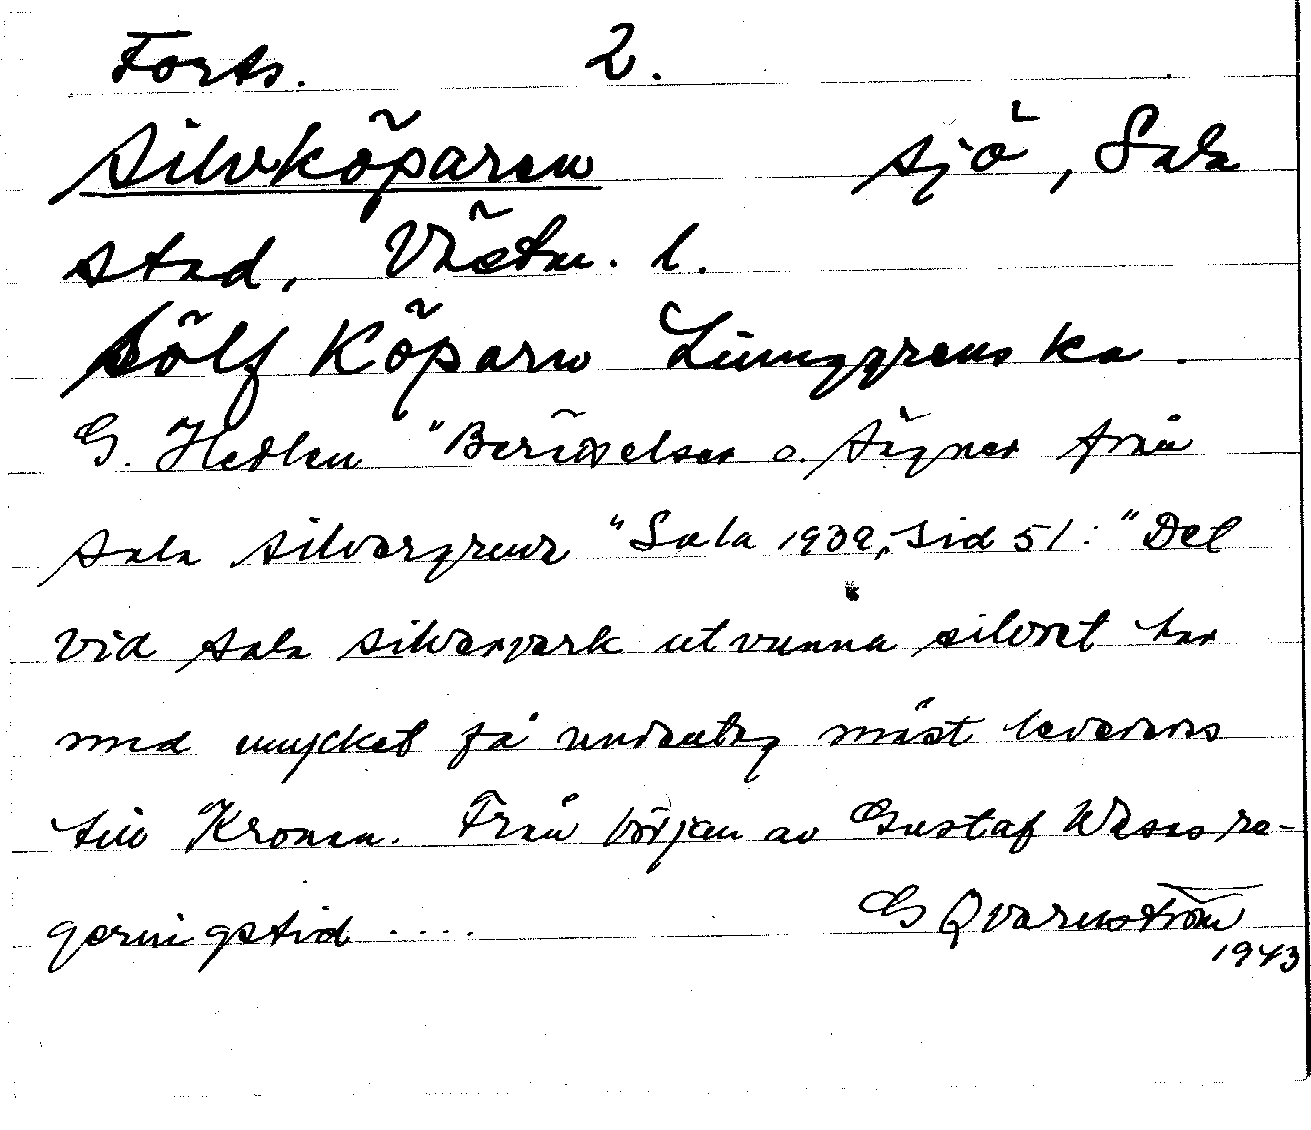 Forts. 2.
Silvköparen sjö, Sala
stad, Västm. l.
sölf Köparn Ljunggrenska.
G. Hedlen "Berättelser o. Sägner från
Sala silvergruva "Sala 1939, sid 51: "Det
vid Sala silververk utvunna silvret har
med mycket få undantag måst levereras
till Kronan. Från början av Gustaf Wasas re-
geringstid ....
G Qvarnström
1943